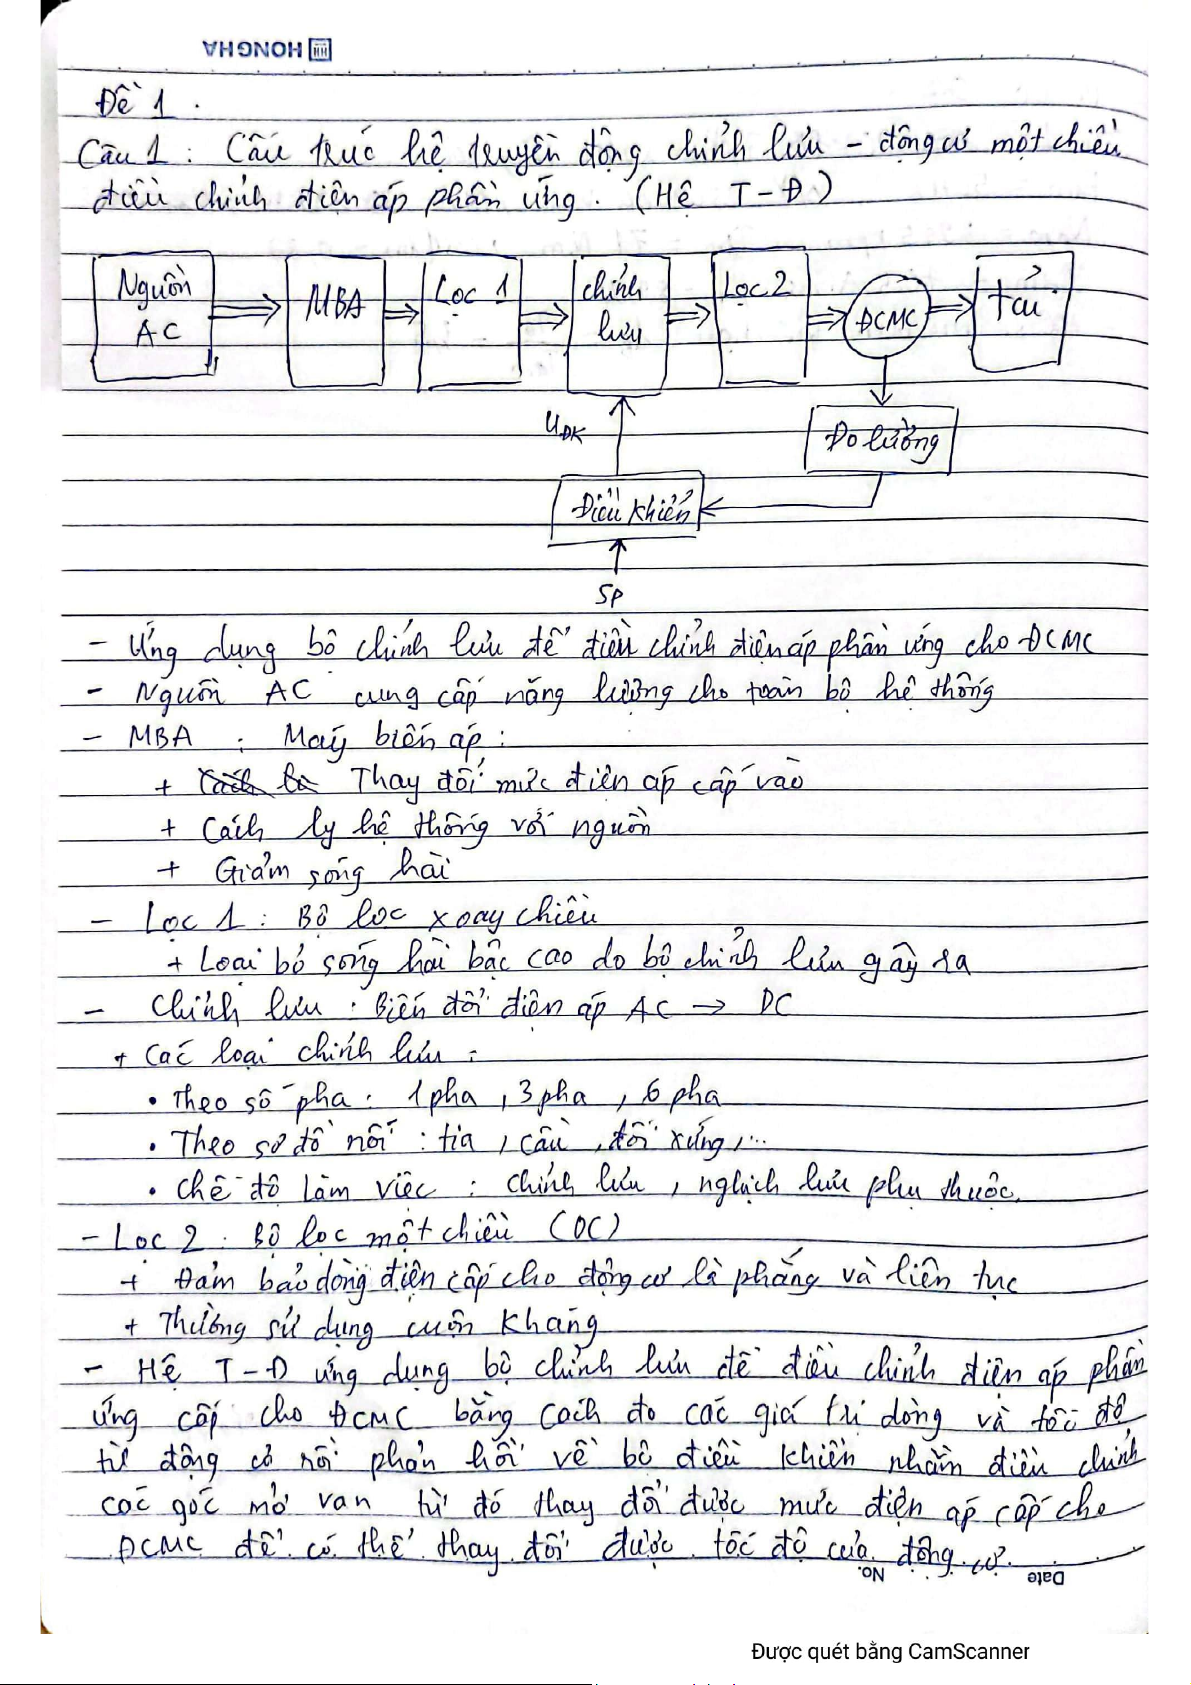 HONGHA
Đề 1.
Câu 1: Cấu trúc hệ truyền động chỉnh lưu – động cơ một chiều
điều chỉnh điện áp phần ứng. (Hệ T-Đ)
Nguồn AC
MBA
Lọc 1
chỉnh lưu
Lọc 2
ĐCMC
Tải
UĐK
Đo lường
Điều khiển
SP
- Ứng dụng bộ chỉnh lưu để điều chỉnh điện áp phần ứng cho ĐCMC
- Nguồn AC cung cấp năng lượng cho toàn bộ hệ thống
- MBA : Máy biến áp :
+ Thay đổi mức điện áp cấp vào
+ Cách ly hệ thống với nguồn
+ Giảm sóng hài
- Lọc 1 : Bộ lọc xoay chiều
+ Loại bỏ sóng hài bậc cao do bộ chỉnh lưu gây ra
- Chỉnh lưu : Biến đổi điện áp AC → DC
+ Các loại chỉnh lưu :
• Theo số pha : 1 pha , 3 pha , 6 pha
• Theo sơ đồ nối : tia , cầu , đối xứng , ...
• Chế độ làm việc : chỉnh lưu , nghịch lưu phụ thuộc.
- Lọc 2 : Bộ lọc một chiều (DC)
+ Đảm bảo dòng điện cấp cho động cơ là phẳng và liên tục
+ Thường sử dụng cuộn kháng
- Hệ T-Đ ứng dụng bộ chỉnh lưu để điều chỉnh điện áp phần
ứng cấp cho ĐCMC bằng cách đo các giá trị dòng và tốc độ
từ động cơ rồi phản hồi về bộ điều khiển nhằm điều chỉnh
các góc mở van từ đó thay đổi được mức điện áp cấp cho
ĐCMC để có thể thay đổi được tốc độ của động cơ.
No.
Date
Được quét bằng CamScanner